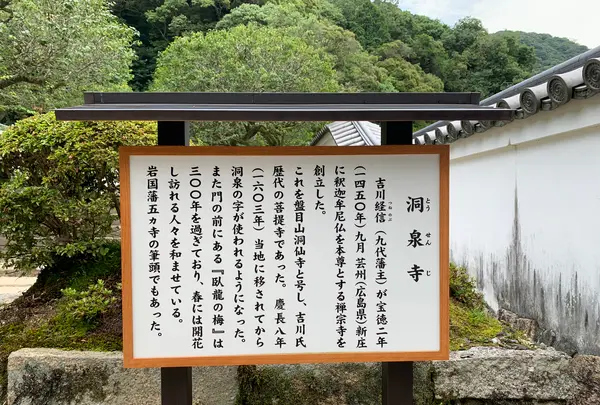 洞泉寺
とう せん じ
吉川経信（九代藩主）が宝徳二年
つね のぶ
（一四五〇年）九月 芸州（広島県）新庄
に釈迦牟尼仏を本尊とする禅宗寺を
創立した。
これを盤目山洞仙寺と号し、吉川氏
歴代の菩提寺であった。慶長八年
（一六〇三年）当地に移されてから
洞泉の字が使われるようになった。
また門の前にある『臥龍の梅』は
三〇〇年を過ぎており、春には開花
し訪れる人々を和ませている。
岩国藩五ヵ寺の筆頭でもあった。